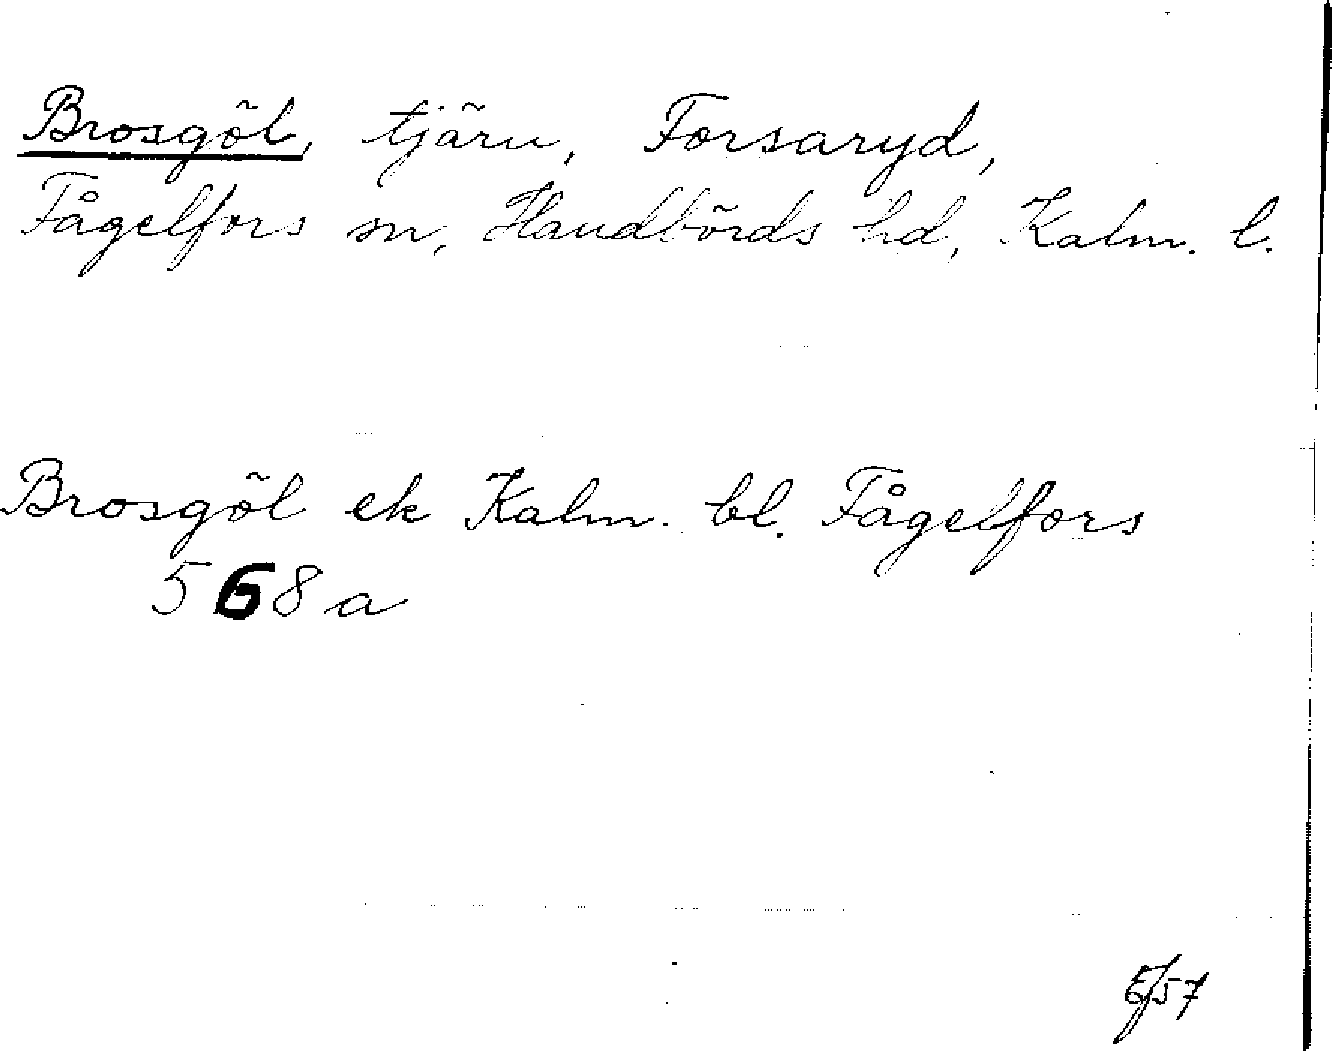 Brosgöl, tjärn, Forsaryd,
Fågelfors sn, Handbörds hd, Kalm. l.
Brosgöl ek Kalm. bl. Fågelfors
568a